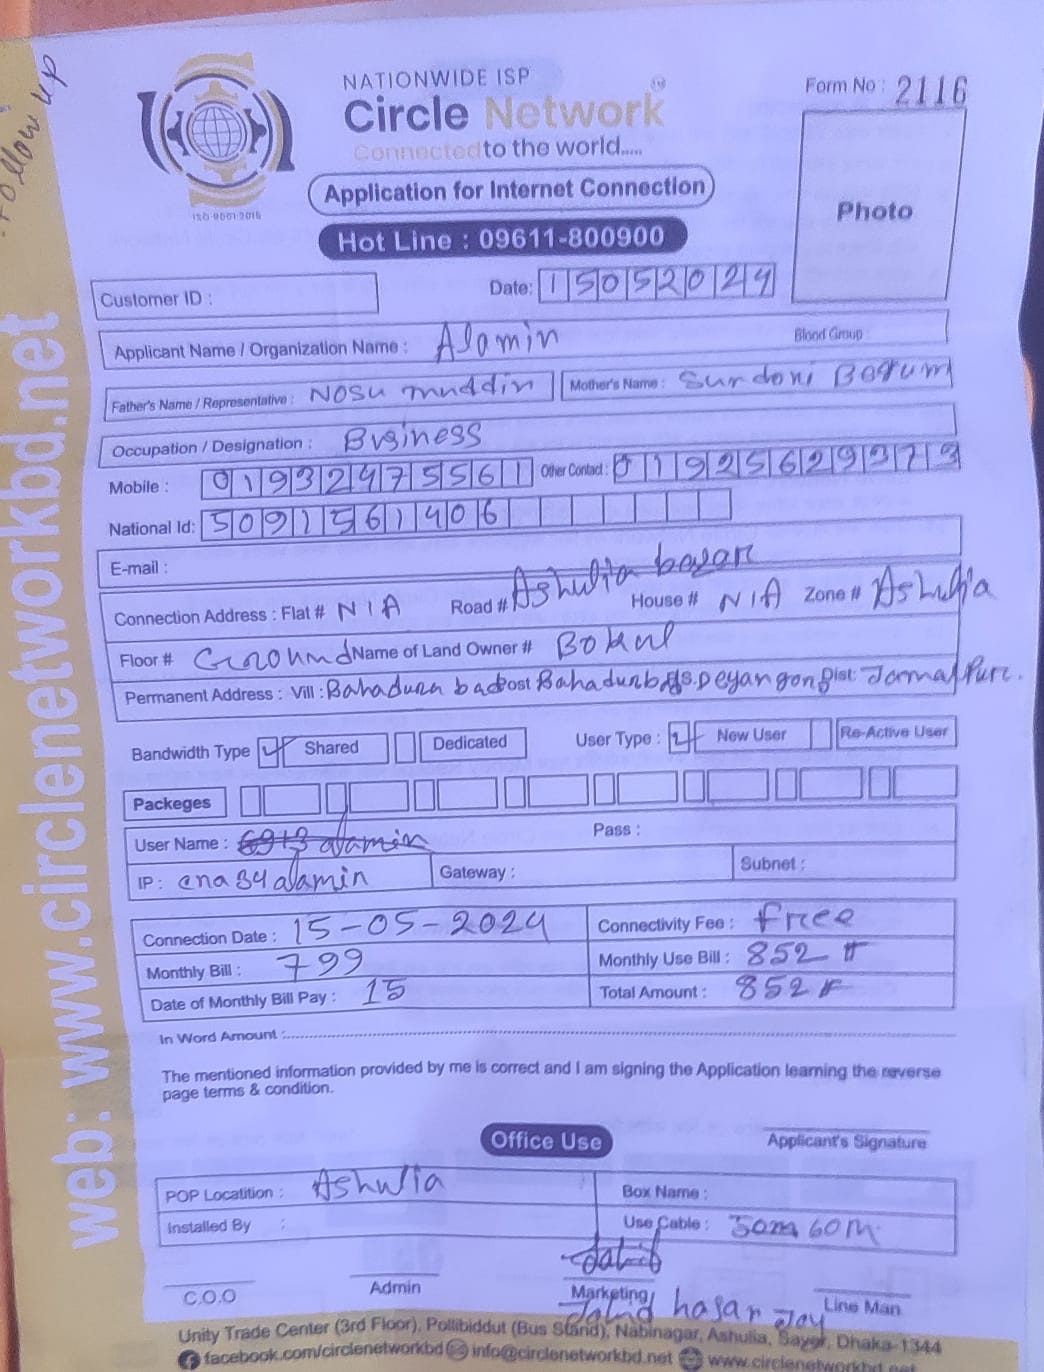 Follow up
NATIONWIDE ISP
Circle Network
Connected to the world.....
ISO 9001:2015
Form No : 2116
Photo
Application for Internet Connection
Hot Line : 09611-800900
Customer ID :
Date: 15052024
Applicant Name / Organization Name : Alamin
Blood Group :
Father's Name / Representative : Nosu muddin Mother's Name : Surdoni Begum
Occupation / Designation : Business
Mobile : 01932475561 Other Contact : 01925629373
National Id: 5091561406
E-mail :
Connection Address : Flat # N/A Road # Ashulia bazar House # N/A Zone # Ashulia
Floor # Ground Name of Land Owner # Bokul
Permanent Address : Vill : Bahadura bad Post Bahadurabad P.S. Deyangong Dist: Jamalpur.
Bandwidth Type Shared Dedicated User Type : New User Re-Active User
Packeges
User Name : alamin Pass :
IP : cna34alamin Gateway : Subnet :
Connection Date : 15-05-2024 Connectivity Fee : free
Monthly Bill : 799 Monthly Use Bill : 852
Date of Monthly Bill Pay : 15 Total Amount : 852
In Word Amount :
The mentioned information provided by me is correct and I am signing the Application learning the reverse
page terms & condition.
Office Use
Applicant's Signature
POP Locatition : Ashulia Box Name :
Installed By : Use Cable : 30m 60m
C.O.O Admin Marketing Line Man
Jahid hasan Joy
Unity Trade Center (3rd Floor), Pollibiddut (Bus Stand), Nabinagar, Ashulia, Savar, Dhaka-1344
facebook.com/circlenetworkbd info@circlenetworkbd.net www.circlenetworkbd.net
web: www.circlenetworkbd.net